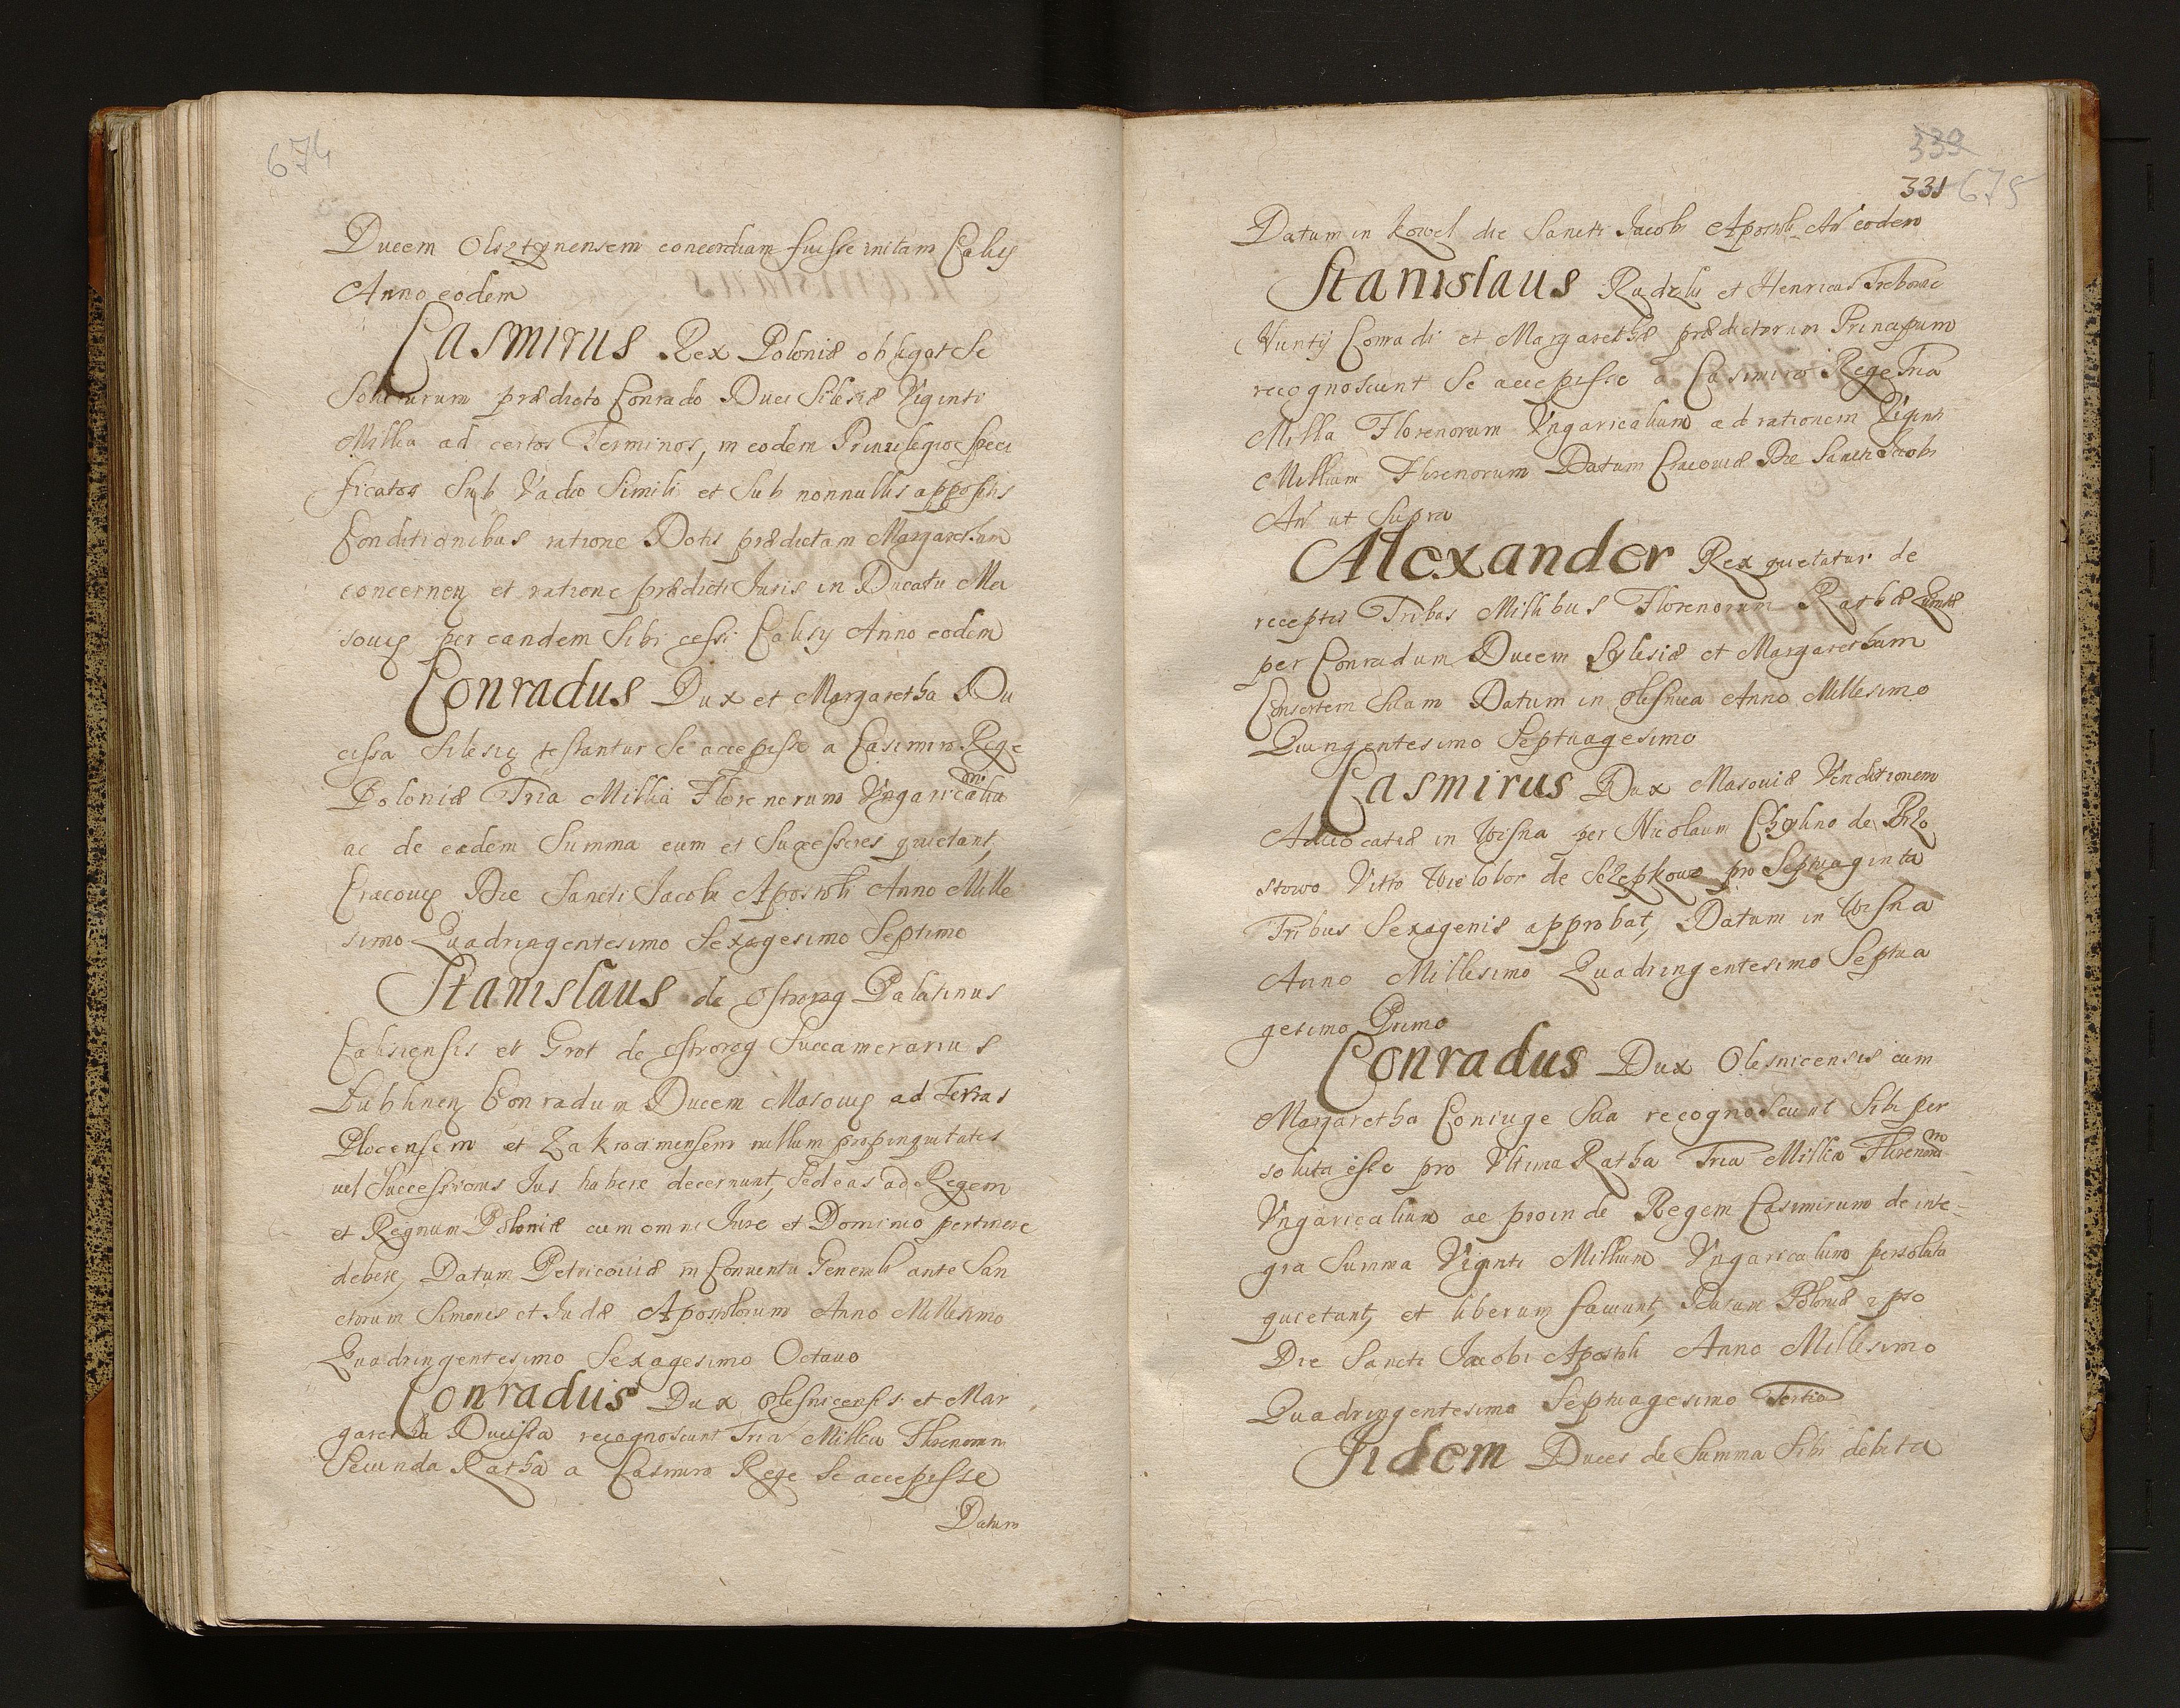 674
Ducem Olsztynensem concordiam fuisse initam Calisij
Anno eodem
Casmirus Rex Poloniæ obligat se
Soluturum prædicto Conrado Duci Silesiæ Viginti
Millia ad certos Terminos, in eodem Priuilegio speci
ficatos Sub Vadio Simili et Sub nonnullis appositis
Conditionibus ratione Dotis prædictam Margaretham
concernen et ratione prædicti Juris in Ducatu Ma
souię per eandem Sibi cessi Calisij Anno eodem
Conradus Dux et Margaretha Du
cissa Silesię testantur Se accepisse a Casimiro Rege
Poloniæ Tria Millia Florenorum Vngaricaliu m
ac de eadem Summa eum et Sucessores quietant,
Cracouię Die Sancti Jacobi Apostoli Anno Mille
simo Quadringentesimo Sexagesimo Septimo
Stanislaus de Ostrorog Palatinus
Calisiensis et Grot de Ostrorog Succamerarius
Lublinen Conradum Ducem Masouię ad Terras
Plocensem et Zakrocimensem nullum propinquitatis
uel Successionis Jus habere decernunt, Sed eas ad Regem
et Regnum Poloniæ cum omni Jure et Dominio pertinere
debere, Datum Petricouiæ in Conuentu Generali ante San
ctorum Simonis et Judæ Apostolorum Anno Millesimo
Quadringentesimo Sexagesimo Octauo
Conradus Dux Olesnicensis et Mar
garetha Ducissa recognoscunt Tria Millia Florenorum
Secunda Ratha a Casmiro Rege Se accepisse
Datum
339
331 675
Datum in Kowel die Sancti Jacobi Apostoli An eodem
Stanislaus Rudzki et Henricus
Nuntij Conradi et Margarethæ prædictorum Principum
recognoscunt Se accepisse a Casimiro Rege Tria
Millia Florenorum Vngaricalium ad rationem Viginti
Millium Florenorum Datum Cracouiæ Die Sancti Jacobi
An ut Supra
Alexander Rex quietatur de
receptis Tribus Millibus Florenorum Rathæ
per Conradum Ducem Sylesiæ et Margaretham
Consortem Suam Datum in Olesnica Anno Millesimo
Quingentesimo Septuagesimo
Casmirus Dux Masouiæ Venditionem
Aduocatiæ in Wisna per Nicolaum Chylino de Rzo
stowo Vitto Wielobor de Sczepkowo pro Septuaginta
Tribus Sexagenis approbat, Datum in Wisna
Anno Millesimo Quadringentesimo Septua
gesimo Primo
Conradus Dux Olesnicensis cum
Margaretha Coniuge Sua recognoscunt Sibi per
soluta esse pro Vltima Ratha Tria Millia Florenoru m
Vngaricalium ac proinde Regem Casimirum de inte=
gra Summa Viginti Millium Vngaricalium persoluta
quietant, et liberum faciunt, Datum Poloniæ ipso
Die Sancti Jacobi Apostoli Anno Millesimo
Quadringentesimo Septuagesimo Tertio
Iidem Duces de Summa Sibi debita